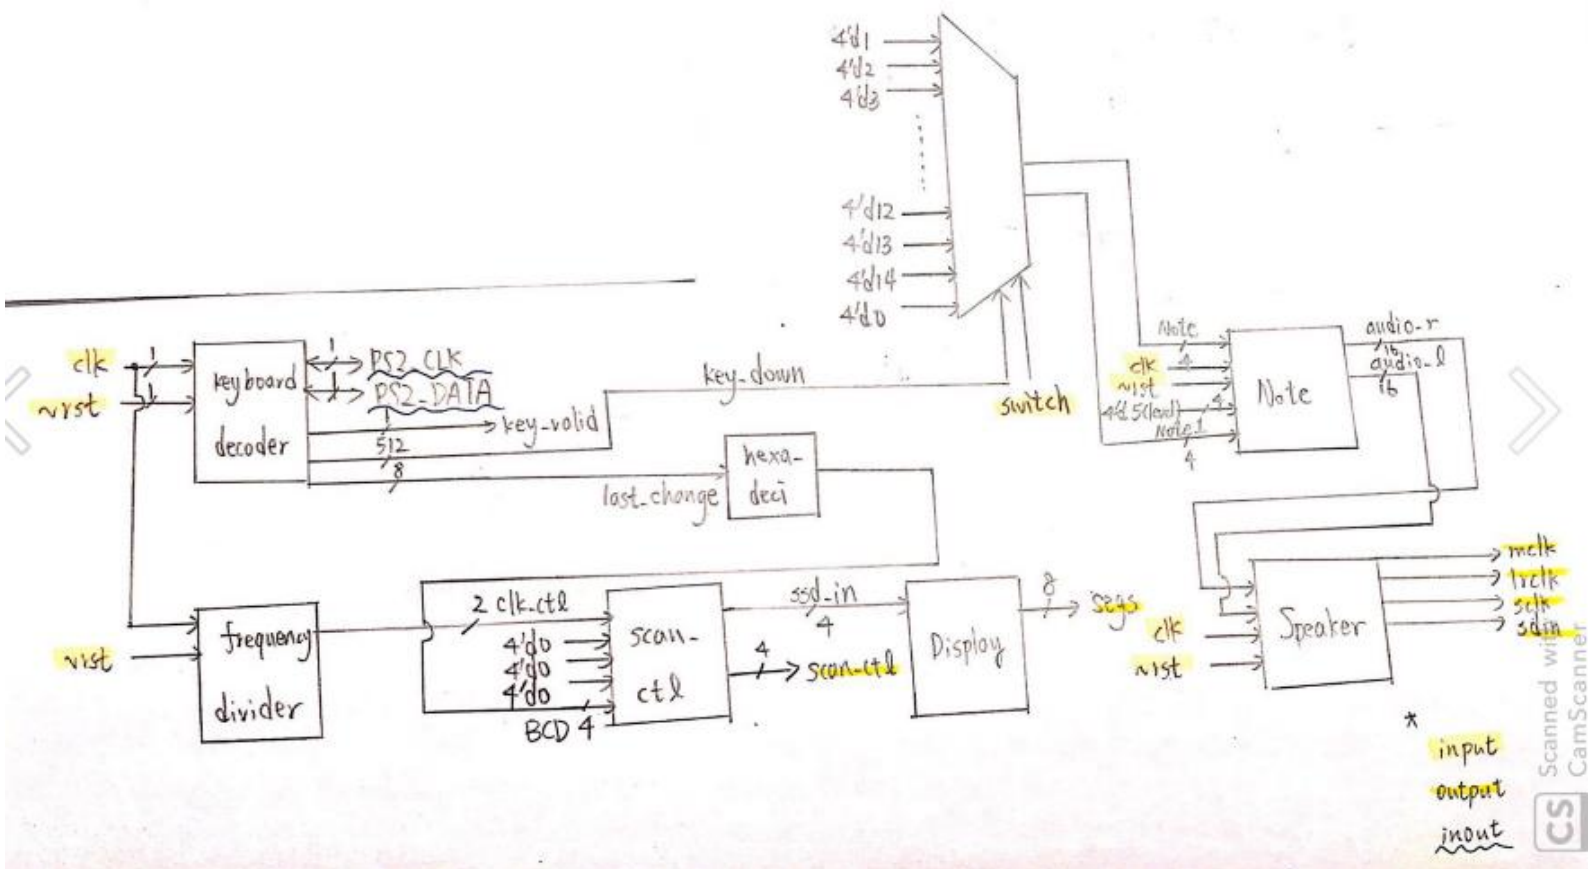 4'd1
4'd2
4'd3
4'd12
4'd13
4'd14
4'd0
clk
1
~rst
1
keyboard
decoder
1
PS2_CLK
1
PS2_DATA
1
key_valid
512
key_down
8
last_change
hexa-
deci
switch
Note
4
clk
~rst
4'd15(level)
4
Note1
4
Note
audio_r
16
audio_l
16
~rst
frequency
divider
2 clk_ctl
4'd0
4'd0
4'd0
BCD 4
scan-
ctl
ssd_in
4
4
scan-ctl
Display
8
segs
clk
~rst
Speaker
mclk
lrclk
sclk
sdin
*
input
output
inout
CS
Scanned with
CamScanner